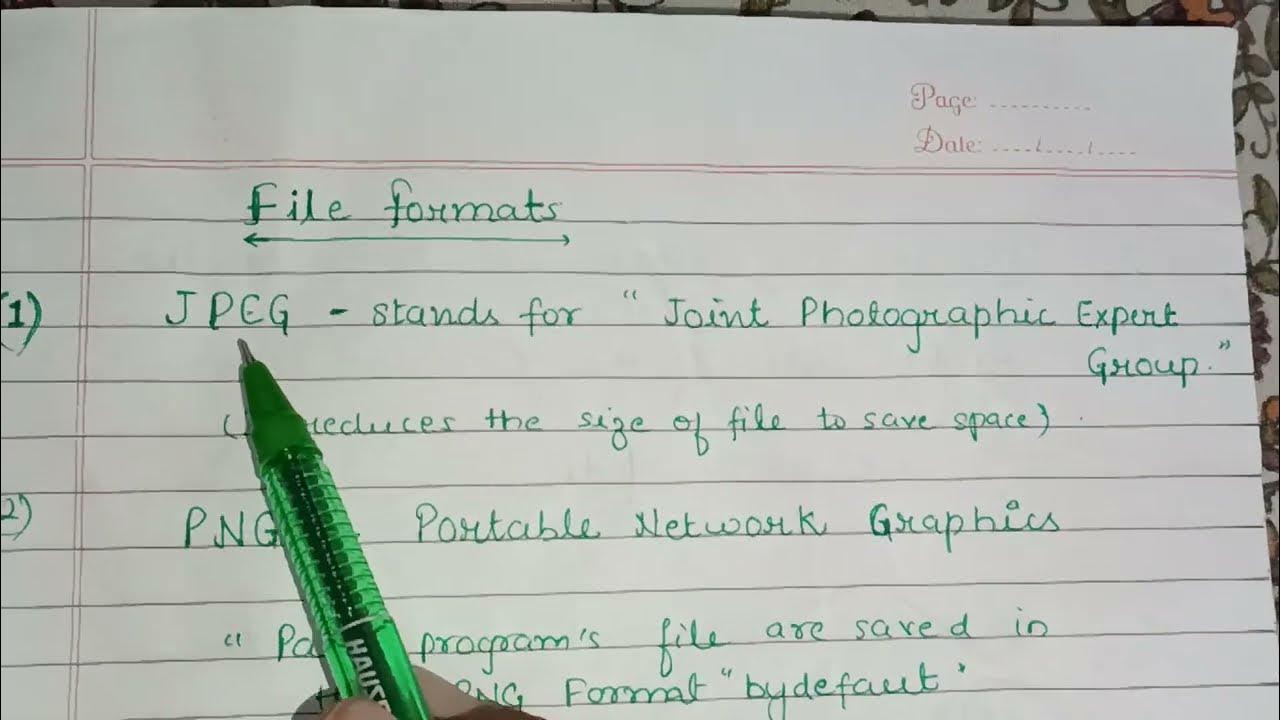 Page: ...........
Date: ..../..../....
File formats
(1) JPEG - stands for "Joint Photographic Expert
Group."
( reduces the size of file to save space).
2) PNG Portable Network Graphics
" program's file are saved in
PNG Format "bydefaut"
HAUSER